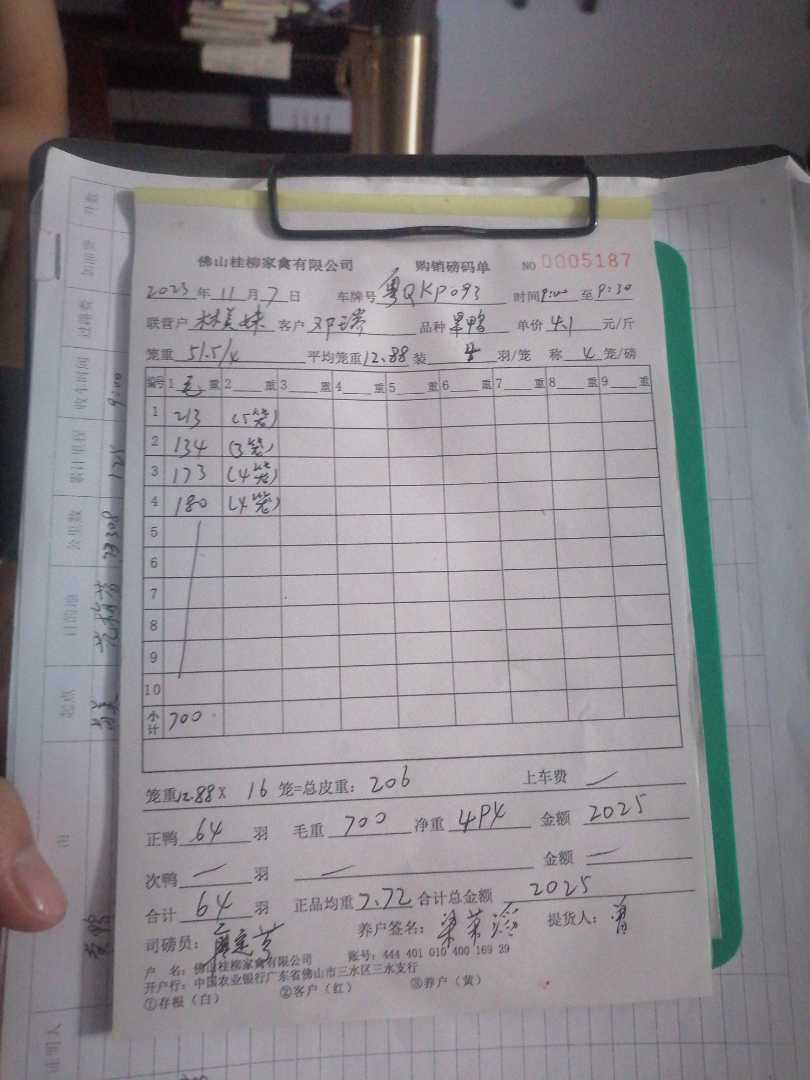 佛山桂柳家禽有限公司 购销磅码单 NO 0005187
2023 年 11 月 7 日 车牌号 粤QKP093 时间 9:00 至 9:30
联营户 林美妹 客户 邓 品种 旱鸭 单价 4.1 元/斤
笼重 51.5/4 平均笼重 12.88 装 羽/笼 称 4 笼/磅
编号 1 毛 重 2 重 3 重 4 重 5 重 6 重 7 重 8 重 9 重
1 213 (5笼)
2 134 (3笼)
3 173 (4笼)
4 180 (4笼)
5
6
7
8
9
10
小计 700
笼重 12.88 X 16 笼=总皮重: 206 上车费 —
正鸭 64 羽 毛重 700 净重 494 金额 2025
次鸭 — 羽 — 金额 —
合计 64 羽 正品均重 7.72 合计总金额 2025
司磅员: 养户签名: 梁 提货人: 曾
户 名: 佛山桂柳家禽有限公司 账号: 444 401 010 400 169 29
开户行: 中国农业银行广东省佛山市三水区三水支行
①存根(白) ②客户(红) ③养户(黄)
收车时间 9:00
累计里程 125
公里数
目的地
起点
证明人